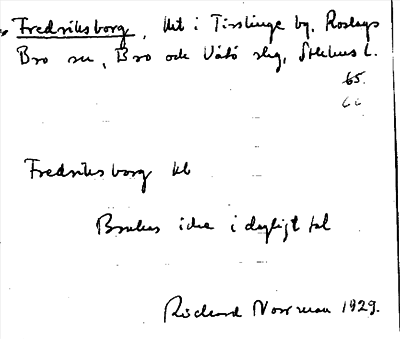 Fredriksborg, Ht i Tisslinge by. Roslags
Bro sn, Bro och Vätö slg, Sthlms l.
65.
66
Fredriksborg hl
Brukas icke i dagligt tal
Richard Norrman 1929.